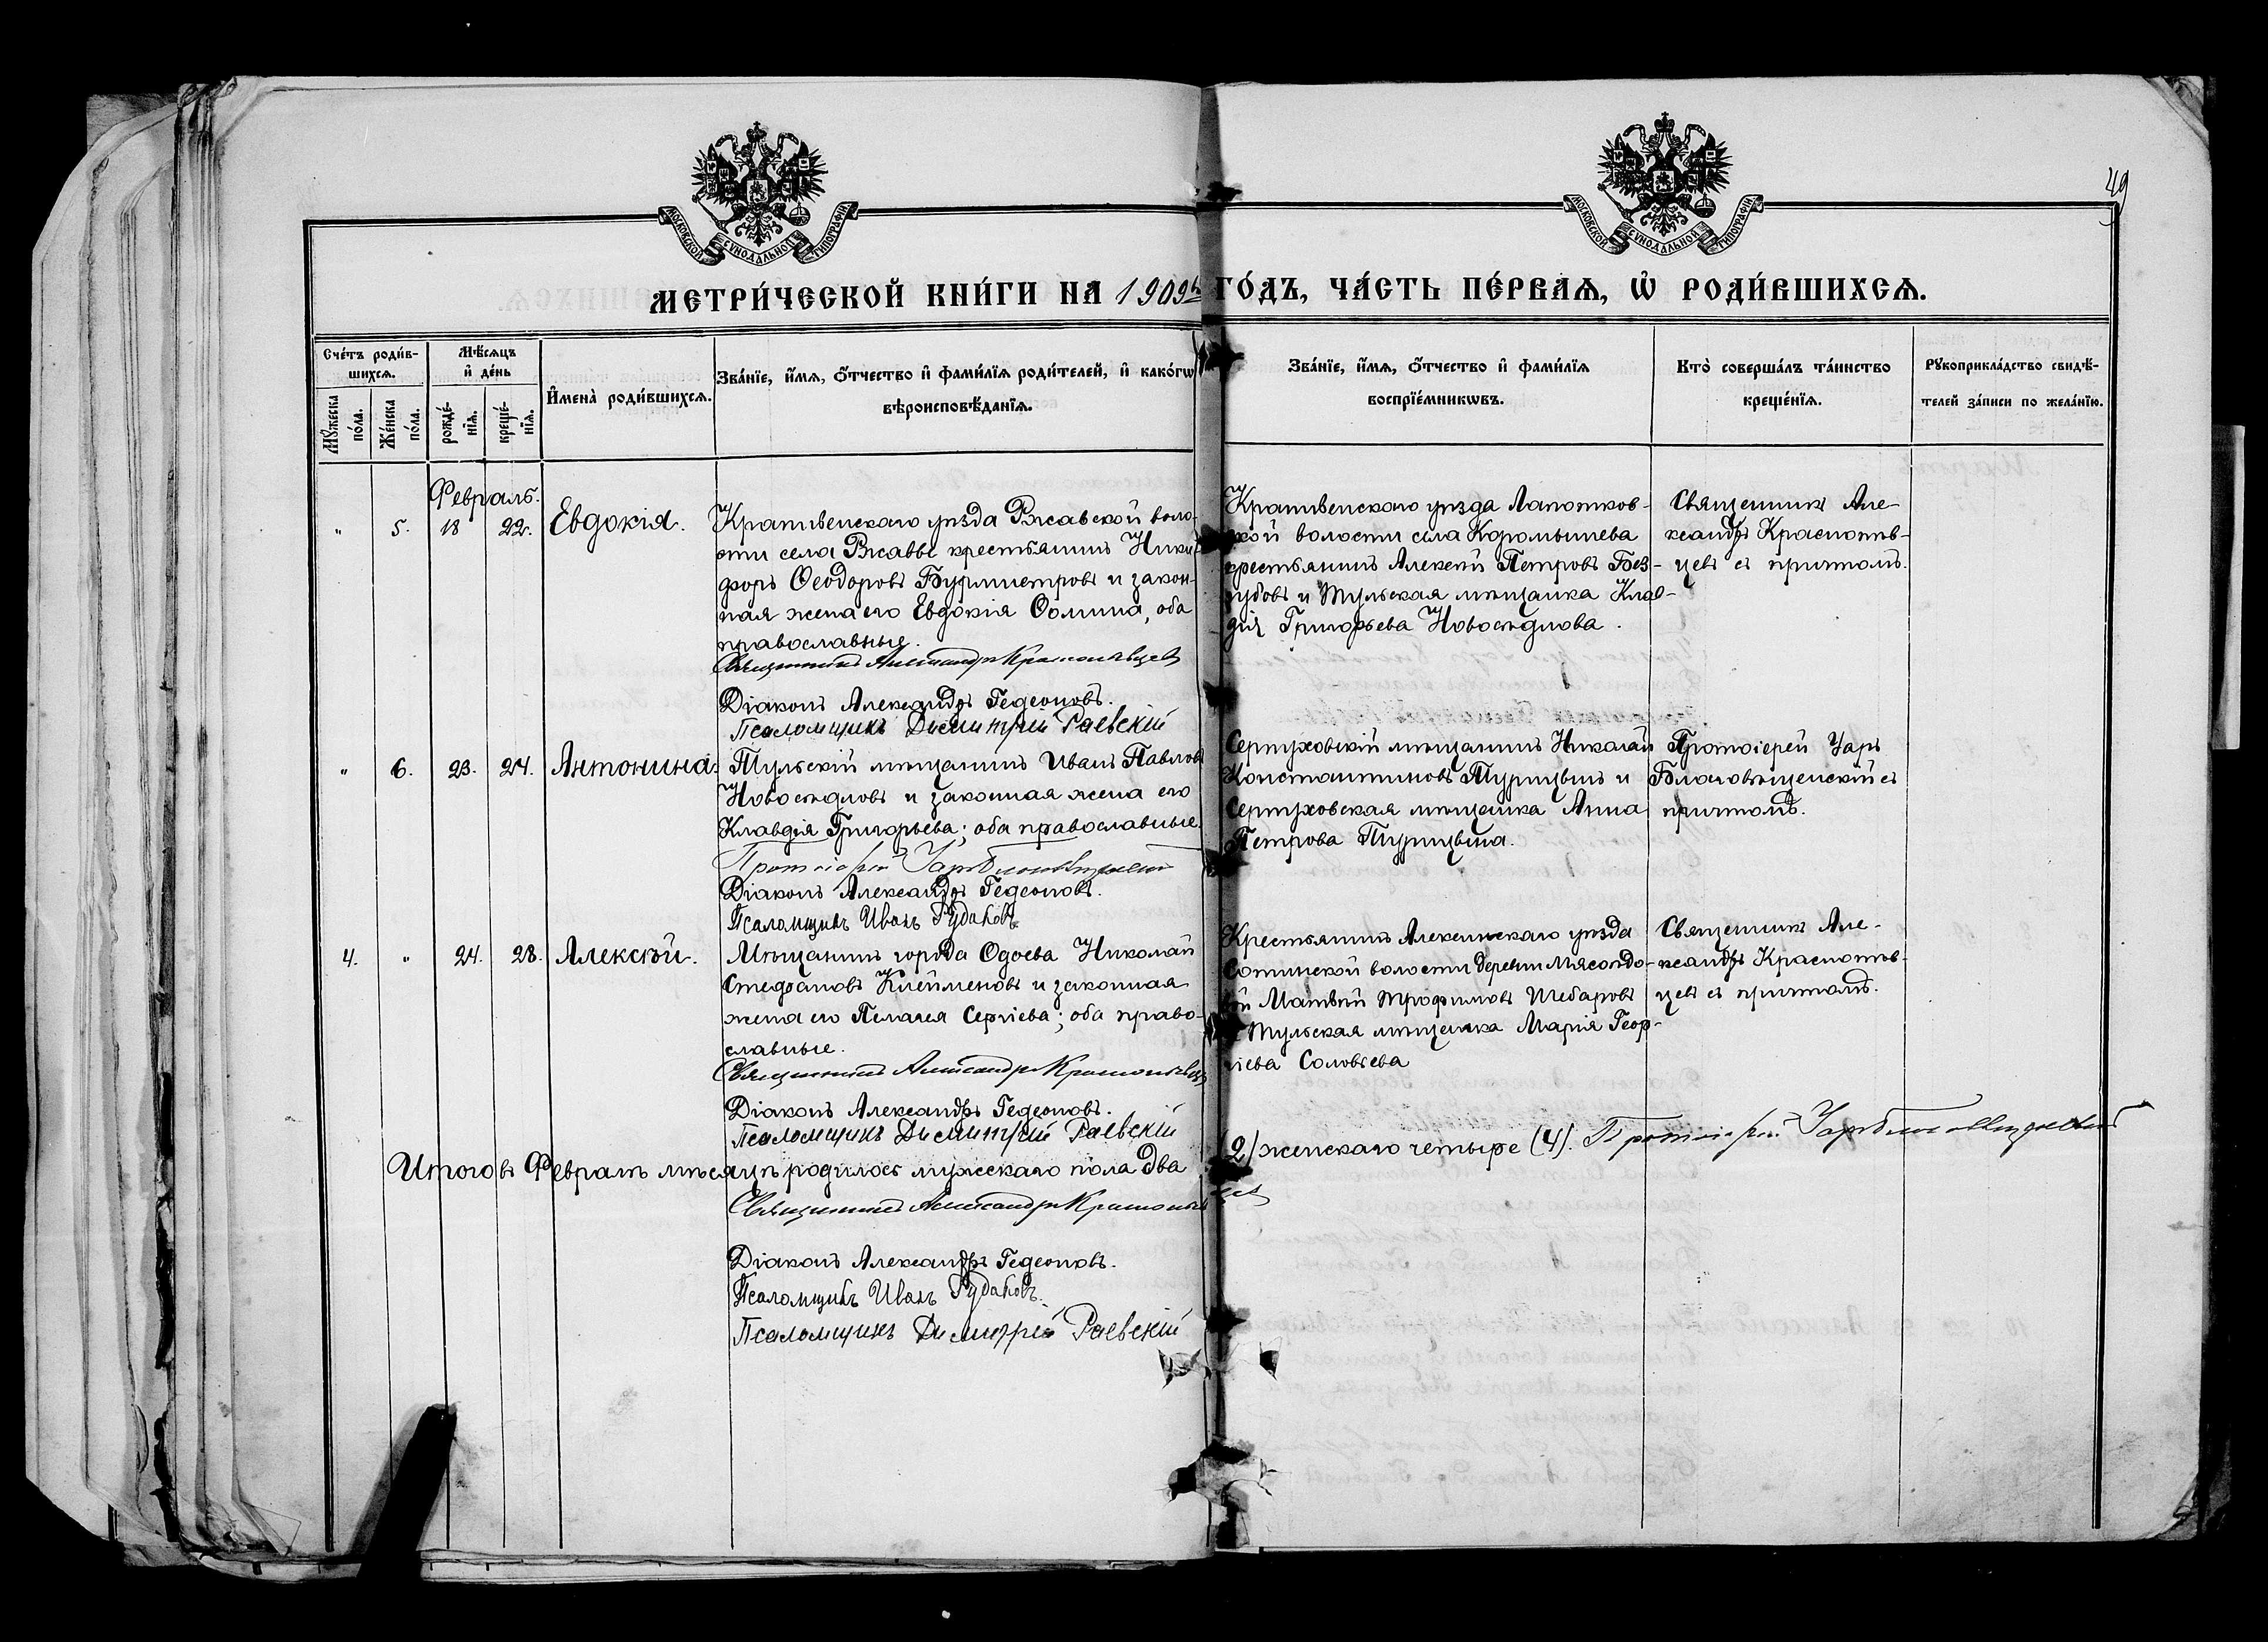 49
МОСКОВСКОЙ СѴНОДАЛЬНОЙ ТИПОГРАФІИ
МОСКОВСКОЙ СѴНОДАЛЬНОЙ ТИПОГРАФІИ
МЕТРИ́ЧЕСКОЙ КНИ́ГИ НА 1909й ГО́ДЪ, ЧА́СТЬ ПЕ́РВАѦ, Ѡ҆ РОДИ́ВШИХСѦ.
Сче́тъ роди́в-
шихсѧ.
Мѣ́сѧцъ
и҆ де́нь
Мꙋ́жеска
по́ла.
Же́нска
по́ла.
рожде́-
нїѧ.
креще́-
нїѧ.
И҆мена̀ роди́вшихсѧ.
Зва́нїе, и҆́мѧ, ѻ҆́тчество и҆ фами́лїѧ роди́телей, и҆ како́гѡ
вѣроисповѣ́данїѧ.
Зва́нїе, и҆́мѧ, ѻ҆́тчество и҆ фами́лїѧ
воспрїе́мникѡвъ.
Кто̀ соверша́лъ та́инство
креще́нїѧ.
Рꙋкоприкла́дство свидѣ́-
телей за́писи по жела́нїю.
Февраль.
" 5. 18 22. Евдокія.
Крапивенскаго уѣзда Ржавской воло-
сти села Ржавы крестьянинъ Ники-
форъ Ѳеодоровъ Бурмистровъ и закон-
ная жена его Евдокія Ѳомина, оба
православные.
Священникъ Александръ Краснопѣвцевъ
Діаконъ Александръ Гедеоновъ.
Псаломщикъ Димитрій Раевскій
Крапивенскаго уѣзда Лапотков-
ской волости села Коромышева
крестьянинъ Алексѣй Петровъ Без-
зубовъ и Тульская мѣщанка Клав-
дія Григорьева Новосѣлова.
Священникъ Але-
ксандръ Краснопѣв-
цевъ съ причтомъ.
" 6. 23. 24. Антонина.
Тульскій мѣщанинъ Иванъ Павловъ
Новосѣловъ и законная жена его
Клавдія Григорьева; оба православные.
Протоіерей Уаръ Благовѣщенскій
Діаконъ Александръ Гедеоновъ.
Псаломщикъ Иванъ Рудаковъ
Серпуховскій мѣщанинъ Николай
Константиновъ Турицынъ и
Серпуховская мѣщанка Анна
Петрова Турицына.
Протоіерей Уаръ
Благовѣщенскій съ
причтомъ.
4. " 24. 28. Алексѣй.
Мѣщанинъ города Одоева Николай
Стефановъ Клейменовъ и законная
жена его Пелагея Сергіева; оба право-
славные.
Священникъ Александръ Краснопѣвцевъ
Діаконъ Александръ Гедеоновъ.
Псаломщикъ Димитрій Раевскій
Крестьянинъ Алексинскаго уѣзда
Сотинской волости деревни Мясоѣдо-
вой Матвѣй Трофимовъ Шебаровъ
и Тульская мѣщанка Марія Геор-
гіева Соловьева
Священникъ Але-
ксандръ Краснопѣв-
цевъ съ причтомъ.
Итого въ Февралѣ мѣсяцѣ родилось мужескаго пола два (2) женскаго четыре (4). Протоіерей Уаръ Благовѣщенскій
Священникъ Александръ Краснопѣвцевъ
Діаконъ Александръ Гедеоновъ.
Псаломщикъ Иванъ Рудаковъ.
Псаломщикъ Димитрій Раевскій